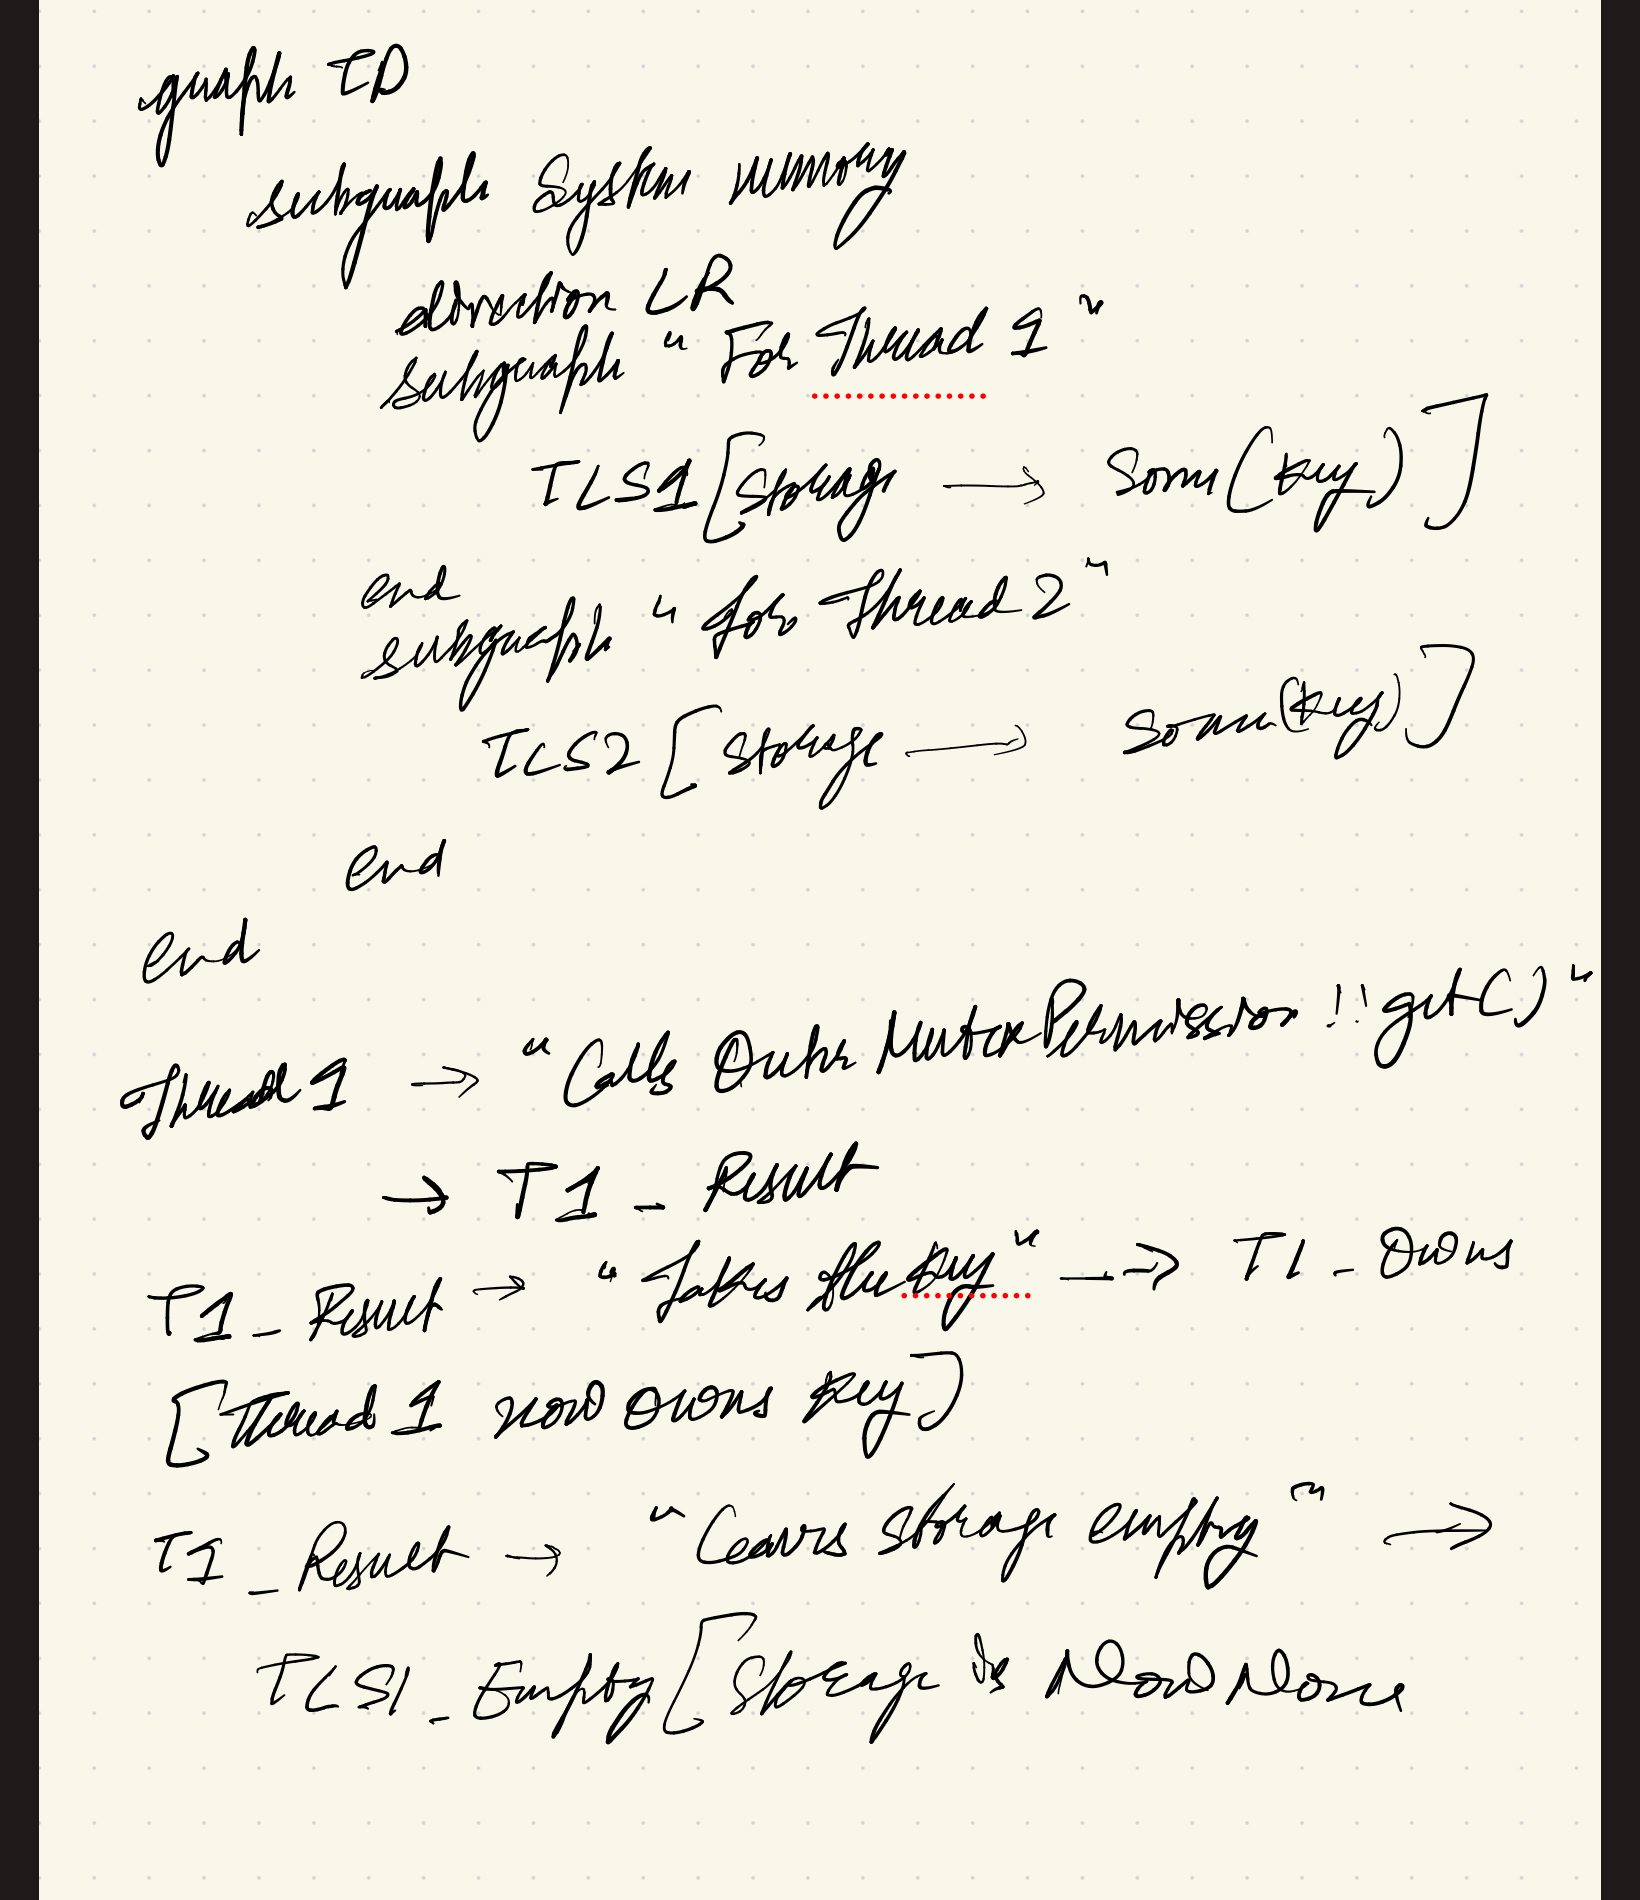 graph TD
subgraph System memory
direction LR
subgraph "For Thread 1"
TLS1[Storage → Some(key)]
end
subgraph "for Thread 2"
TLS2[Storage → Some(key)]
end
end
Thread 1 → "Calls OuterMutexPermission!!get()"
→ T1_Result
T1_Result → "Takes the key" --> T1_Owns
[Thread 1 now owns key]
T1_Result → "Leaves storage empty" →
TLS1_Empty[Storage is Now None